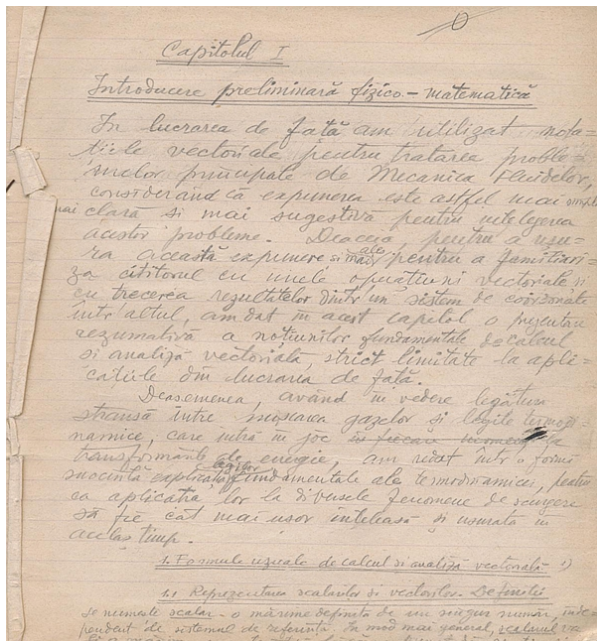 Capitolul I
Introducere preliminară fizico-matematică
In lucrarea de față am utilizat nota-
țiile vectoriale pentru tratarea proble-
melor principale de Mecanica Fluidelor,
considerând că expunerea este astfel mai simplă
mai clară si mai sugestivă pentru intelegerea
acestor probleme. Deaceea, pentru a usu-
ra această expunere si mai ales pentru a familiari-
za cititorul cu unele operatiuni vectoriale si
cu trecerea rezultatelor dintr'un sistem de coordonate
intr'altul, am dat in acest capitol o prezentare
rezumativă a noțiunilor fundamentale de calcul
si analiză vectorială, strict limitate la apli-
catiile din lucrarea de față.
Deasemenea, având in vedere legătura
stransă intre miscarea gazelor și legile termodi-
namice, care intră in joc in fiecare moment la
transformările de energie, am redat intr'o formă
succintă explicatia legilor fundamentale ale termodinamicei, pentru
ca aplicatia lor la diversele fenomene de scurgere
să fie cât mai usor inteleasă și usurată in
acelas timp.
1. Formule uzuale de calcul si analiză vectorială 1)
1.1 Reprezentarea scalarilor si vectorilor. Definitii
Se numeste scalar o mărime definită de un singur număr, inde-
pendent de sistemul de referință. In mod mai general, scalarul